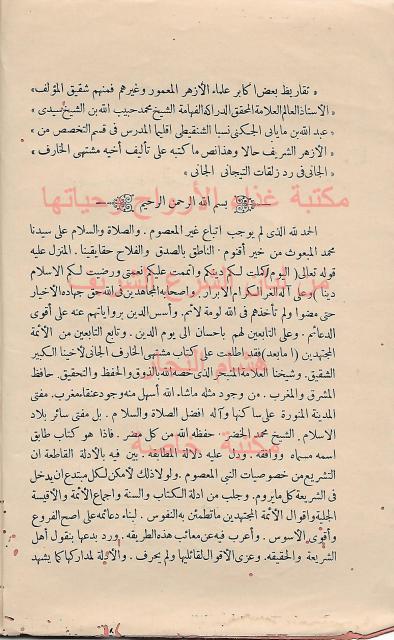 « تقاريظ بعض اكابر علماء الأزهر المعمور وغيرهم فمنهم شقيق المؤلف »
« الاستاذ العالم العلامة المحقق الدراكة الفهامة الشيخ محمد حبيب الله بن الشيخ سيدى »
« عبد الله بن مايابى الجكنى نسبا الشنقيطى اقليما المدرس فى قسم التخصص من »
« الأزهر الشريف حالا وهذا نص ما كتبه على تأليف أخيه مشتهى الخارف »
« الجانى فى رد زلقات التيجانى الجانى »
مكتبة غذاء الأرواح وحياتها
بسم الله الرحمن الرحيم
الحمد لله الذى لم يوجب اتباع غير المعصوم . والصلاة والسلام على سيدنا
محمد المبعوث من خير أقنوم . الناطق بالصدق والفلاح حقا يقينا . المنزل عليه
قوله تعالى ( اليوم أكملت لكم دينكم واتممت عليكم نعمتى ورضيت لكم الاسلام
دينا ) وعلى آله الغر الكرام الابرار . واصحابه المجاهدين فى الله حق جهاده الاخيار
حتى مضوا ولم تأخذهم فى الله لومة لائم . وأسس الدين بروايتهم عنه على أقوى
الدعائم . وعلى التابعين لهم باحسان الى يوم الدين . وتابع التابعين من الأئمة
المجتهدين ( اما بعد ) فقد اطلعت على كتاب مشتهى الخارف الجانى لأخينا الكبير
الشقيق . وشيخنا العلامة المتبحر الذى خصه الله بالذوق والحفظ والتحقيق . حافظ
هشام النجار
المشرق والمغرب . من وجود مثله ماشاء الله أسهل منه وجود عنقاء مغرب . مفتى
المدينة المنورة على ساكنها وآله افضل الصلاة والسلام . بل مفتى سائر بلاد
الاسلام . الشيخ محمد الخضر حفظه الله من كل مضر . فاذا هو كتاب طابق
مكتبة خاصة
اسمه مسماه ووافقه . ودل عليه دلالة المطابقة . بين فيه بالادلة القاطعة ان
التشريع من خصوصيات النبى المعصوم . ولولا ذلك لأمكن لكل مبتدع ان يدخل
فى الشريعة كل ما يروم . وجلب من ادلة الكتاب والسنة واجماع الأئمة والأقيسة
الجلية واقوال الأئمة المجتهدين ما تطمئن به النفوس . لبناء دعائمه على اصح الفروع
وأقوى الاسوس . وأعرب فيه عن معائب هذه الطريقه . ورد بدعها بنقول أهل
الشريعة والحقيقه . وعزى الاقوال لقائليها ولم يحرف . والادلة لمداركها كما يشهد